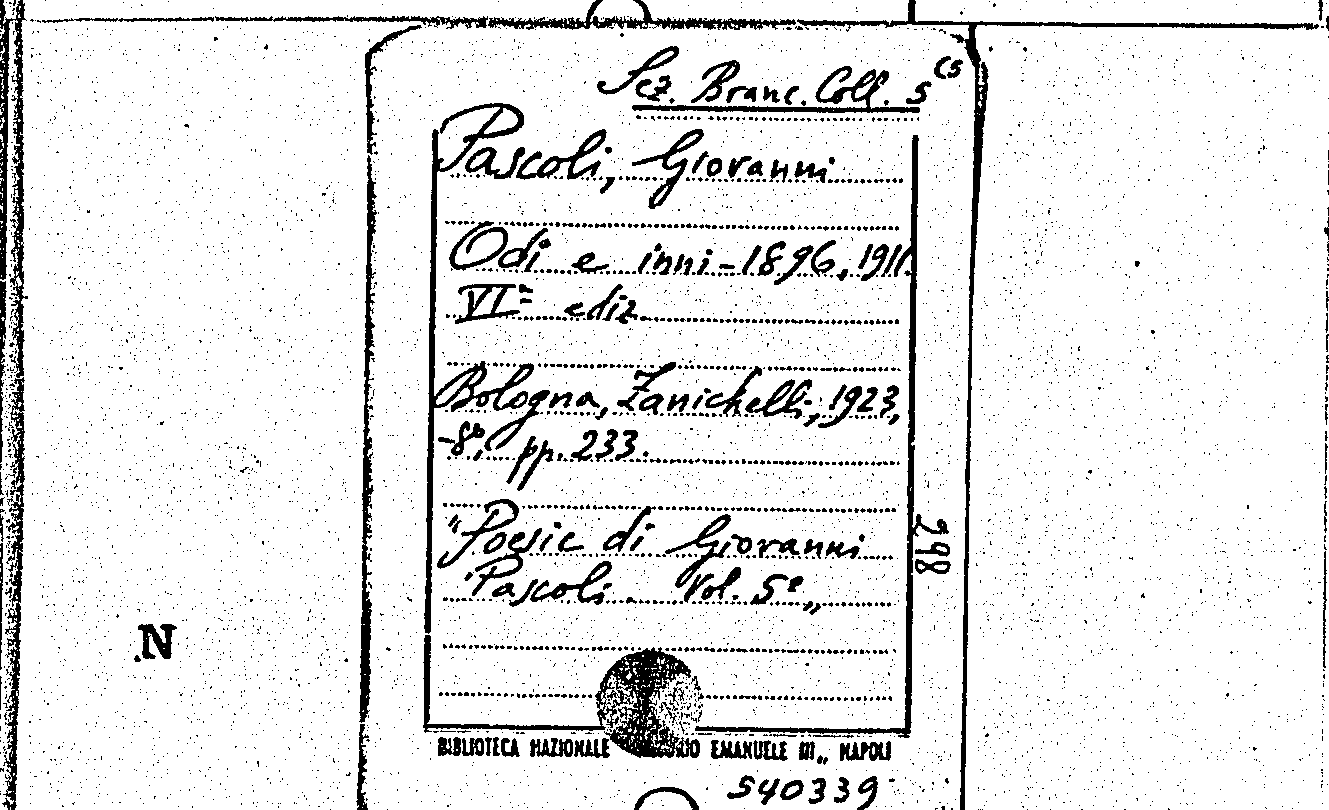 Sez. Branc. Coll. 5 C5
Pascoli, Giovanni
Odi e inni - 1896, 1911.
VIª ediz.
Bologna, Zanichelli, 1923,
-8º, pp. 233.
"Poesie di Giovanni
Pascoli. Vol. 5º„
298
N
BIBLIOTECA NAZIONALE EMANUELE III„ NAPOLI
540339